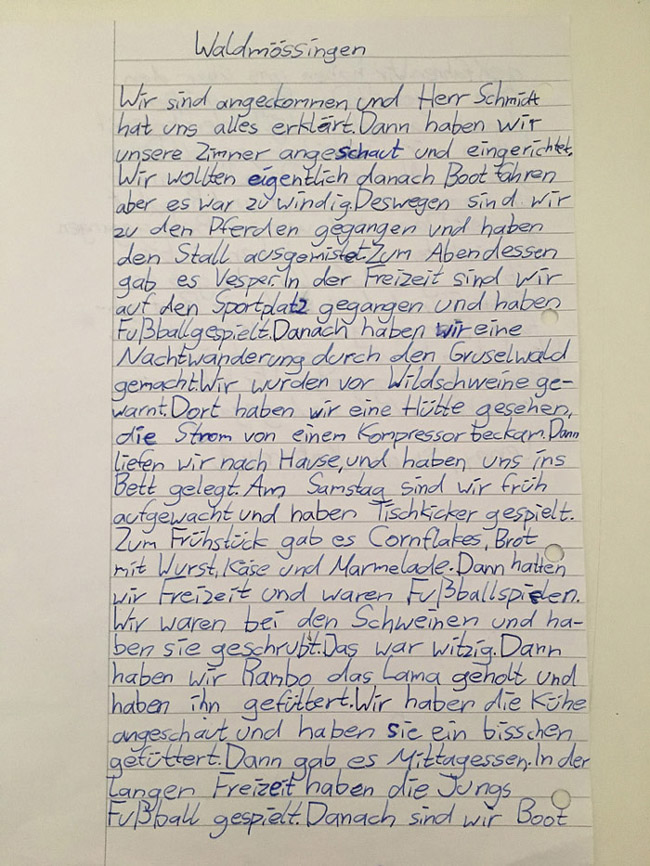 Waldmössingen
Wir sind angeckommen und Herr Schmidt
hat uns alles erklärt. Dann haben wir
unsere Zimmer angeschaut und eingerichtet.
Wir wollten eigentlich danach Boot fahren
aber es war zu windig. Deswegen sind wir
zu den Pferden gegangen und haben
den Stall ausgemistet. Zum Abendessen
gab es Vesper. In der Freizeit sind wir
auf den Sportplatz gegangen und haben
Fußballgespielt. Danach haben wir eine
Nachtwanderung durch den Gruselwald
gemacht. Wir wurden vor Wildschweine ge-
warnt. Dort haben wir eine Hütte gesehen,
die Strom von einem Kompressor beckam. Dann
liefen wir nach Hause, und haben uns ins
Bett gelegt. Am Samstag sind wir früh
aufgewacht und haben Tischkicker gespielt.
Zum Frühstück gab es Cornflakes, Brot
mit Wurst, Käse und Marmelade. Dann hatten
wir Freizeit und waren Fußballspielen.
Wir waren bei den Schweinen und ha-
ben sie geschrubt. Das war witzig. Dann
haben wir Rambo das Lama geholt und
haben ihn gefüttert. Wir haben die Kühe
angeschaut und haben sie ein bisschen
gefüttert. Dann gab es Mittagessen. In der
langen Freizeit haben die Jungs
Fußball gespielt. Danach sind wir Boot